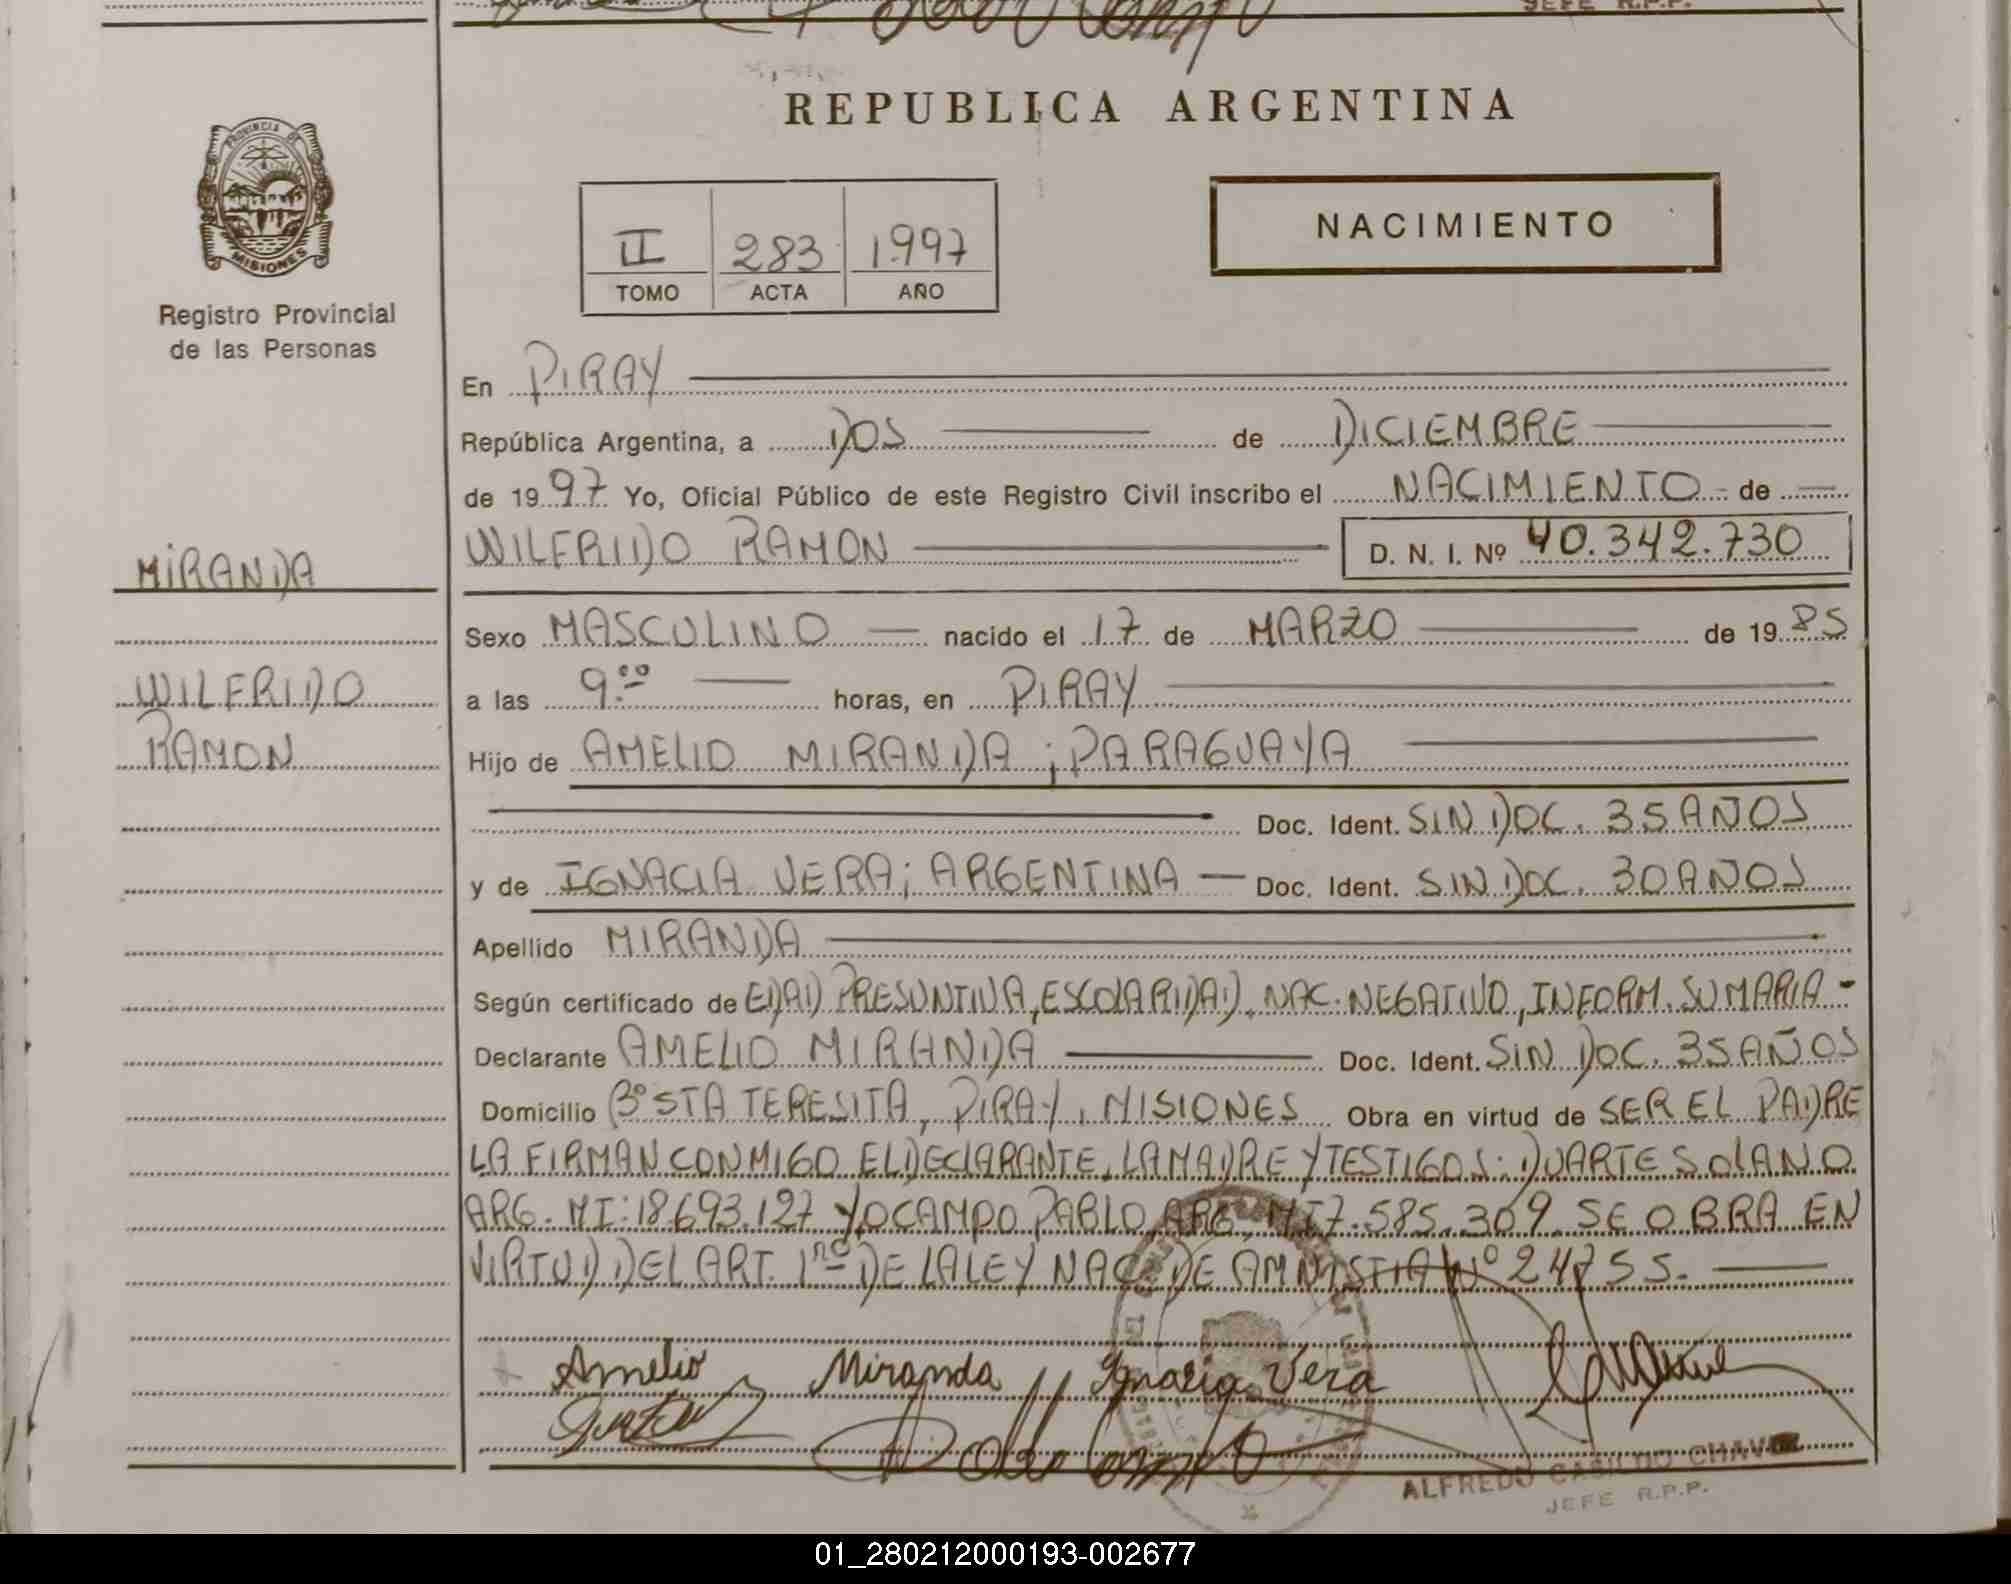 JEFE R.P.P.
REPUBLICA ARGENTINA
PROVINCIA DE
MISIONES
Registro Provincial
de las Personas
II 283 1997
TOMO ACTA AÑO
NACIMIENTO
En PIRAY
República Argentina, a DOS de DICIEMBRE
de 1997 Yo, Oficial Público de este Registro Civil inscribo el NACIMIENTO de
WILFRIDO RAMON D. N. I. Nº 40.342.730
MIRANDA
WILFRIDO
RAMON
Sexo MASCULINO nacido el 17 de MARZO de 1985
a las 9.00 horas, en PIRAY
Hijo de AMELIO MIRANDA ; PARAGUAYA
Doc. Ident. SIN DOC. 35 AÑOS
y de IGNACIA VERA; ARGENTINA Doc. Ident. SIN DOC. 30 AÑOS
Apellido MIRANDA
Según certificado de EDAD PRESUNTIVA, ESCOLARIDAD, NAC. NEGATIVO, INFORM. SUMARIA -
Declarante AMELIO MIRANDA Doc. Ident. SIN DOC. 35 AÑOS
Domicilio Bº STA TERESITA, PIRAY, MISIONES Obra en virtud de SER EL PADRE
LA FIRMAN CONMIGO EL DECLARANTE, LA MADRE Y TESTIGOS: DUARTE SOLANO
ARG. MI: 18.693.127 Y OCAMPO PABLO, ARG. MI 7.585.309. SE OBRA EN
VIRTUD DEL ART. 1ro DE LA LEY NAC. DE AMNISTIA Nº 24755.
Amelio Miranda Ignacia Vera
ALFREDO CASILDO CHAVEZ
JEFE R.P.P.
01_280212000193-002677